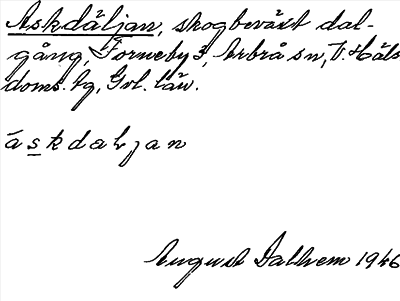 Askdäljan, skogbeväxt dal-
gång, Forneby 3, Arbrå sn, V. Häls
doms. hg, Gvl. län.
áskdaljan
August Dalhem 1946